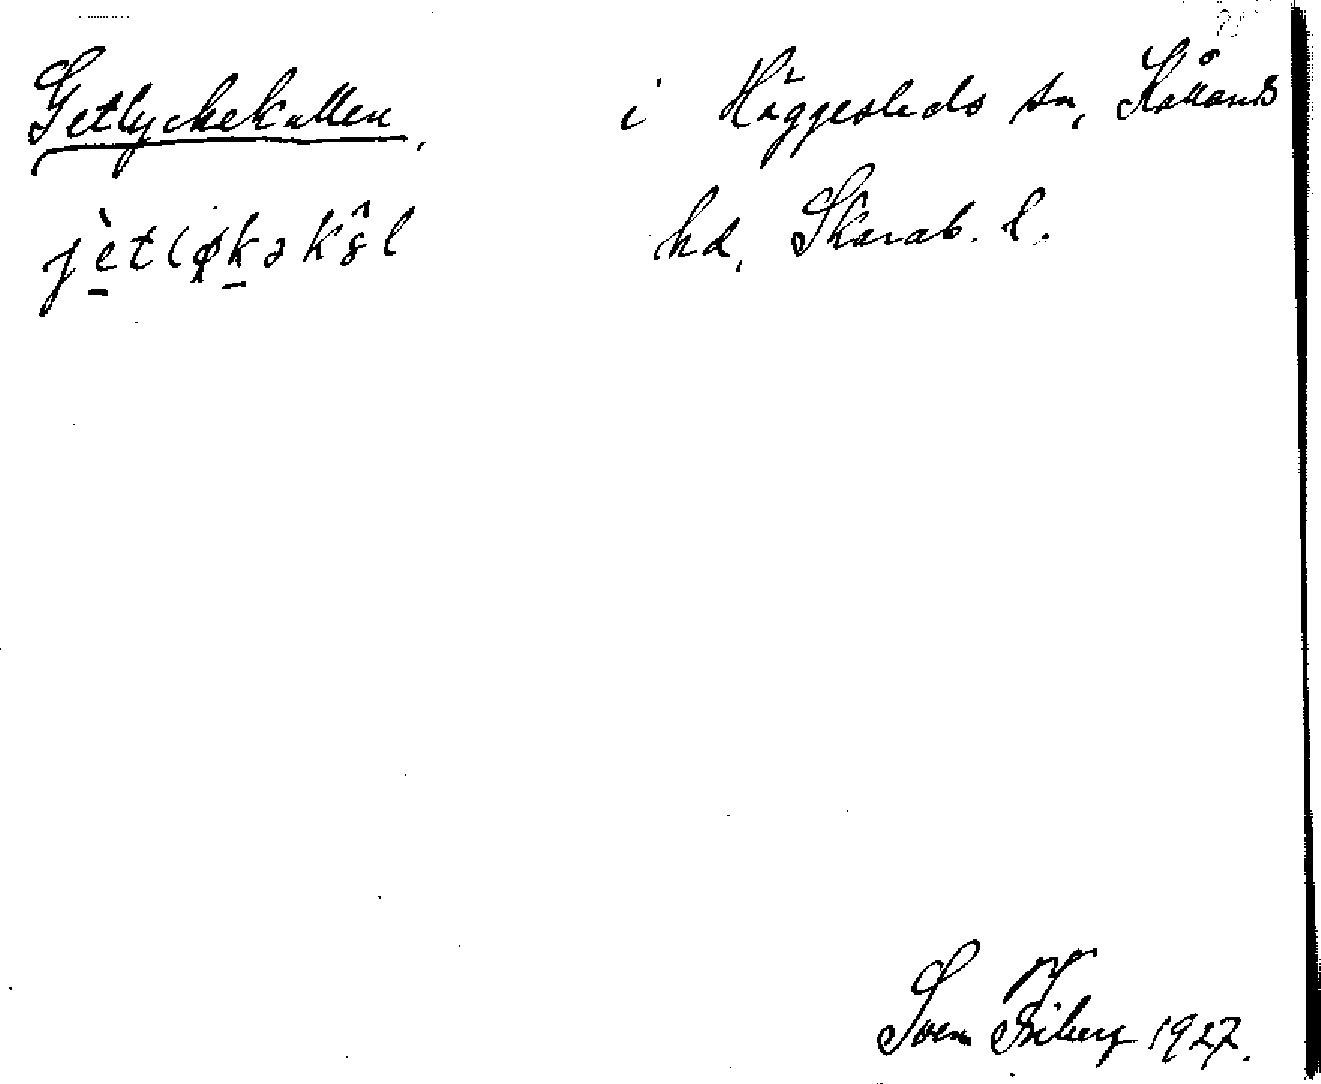 Getlyckekullen, i Häggesleds sn, Kållands
jètløkəkŝl hd, Skarab. l.
Sven Friberg 1927.